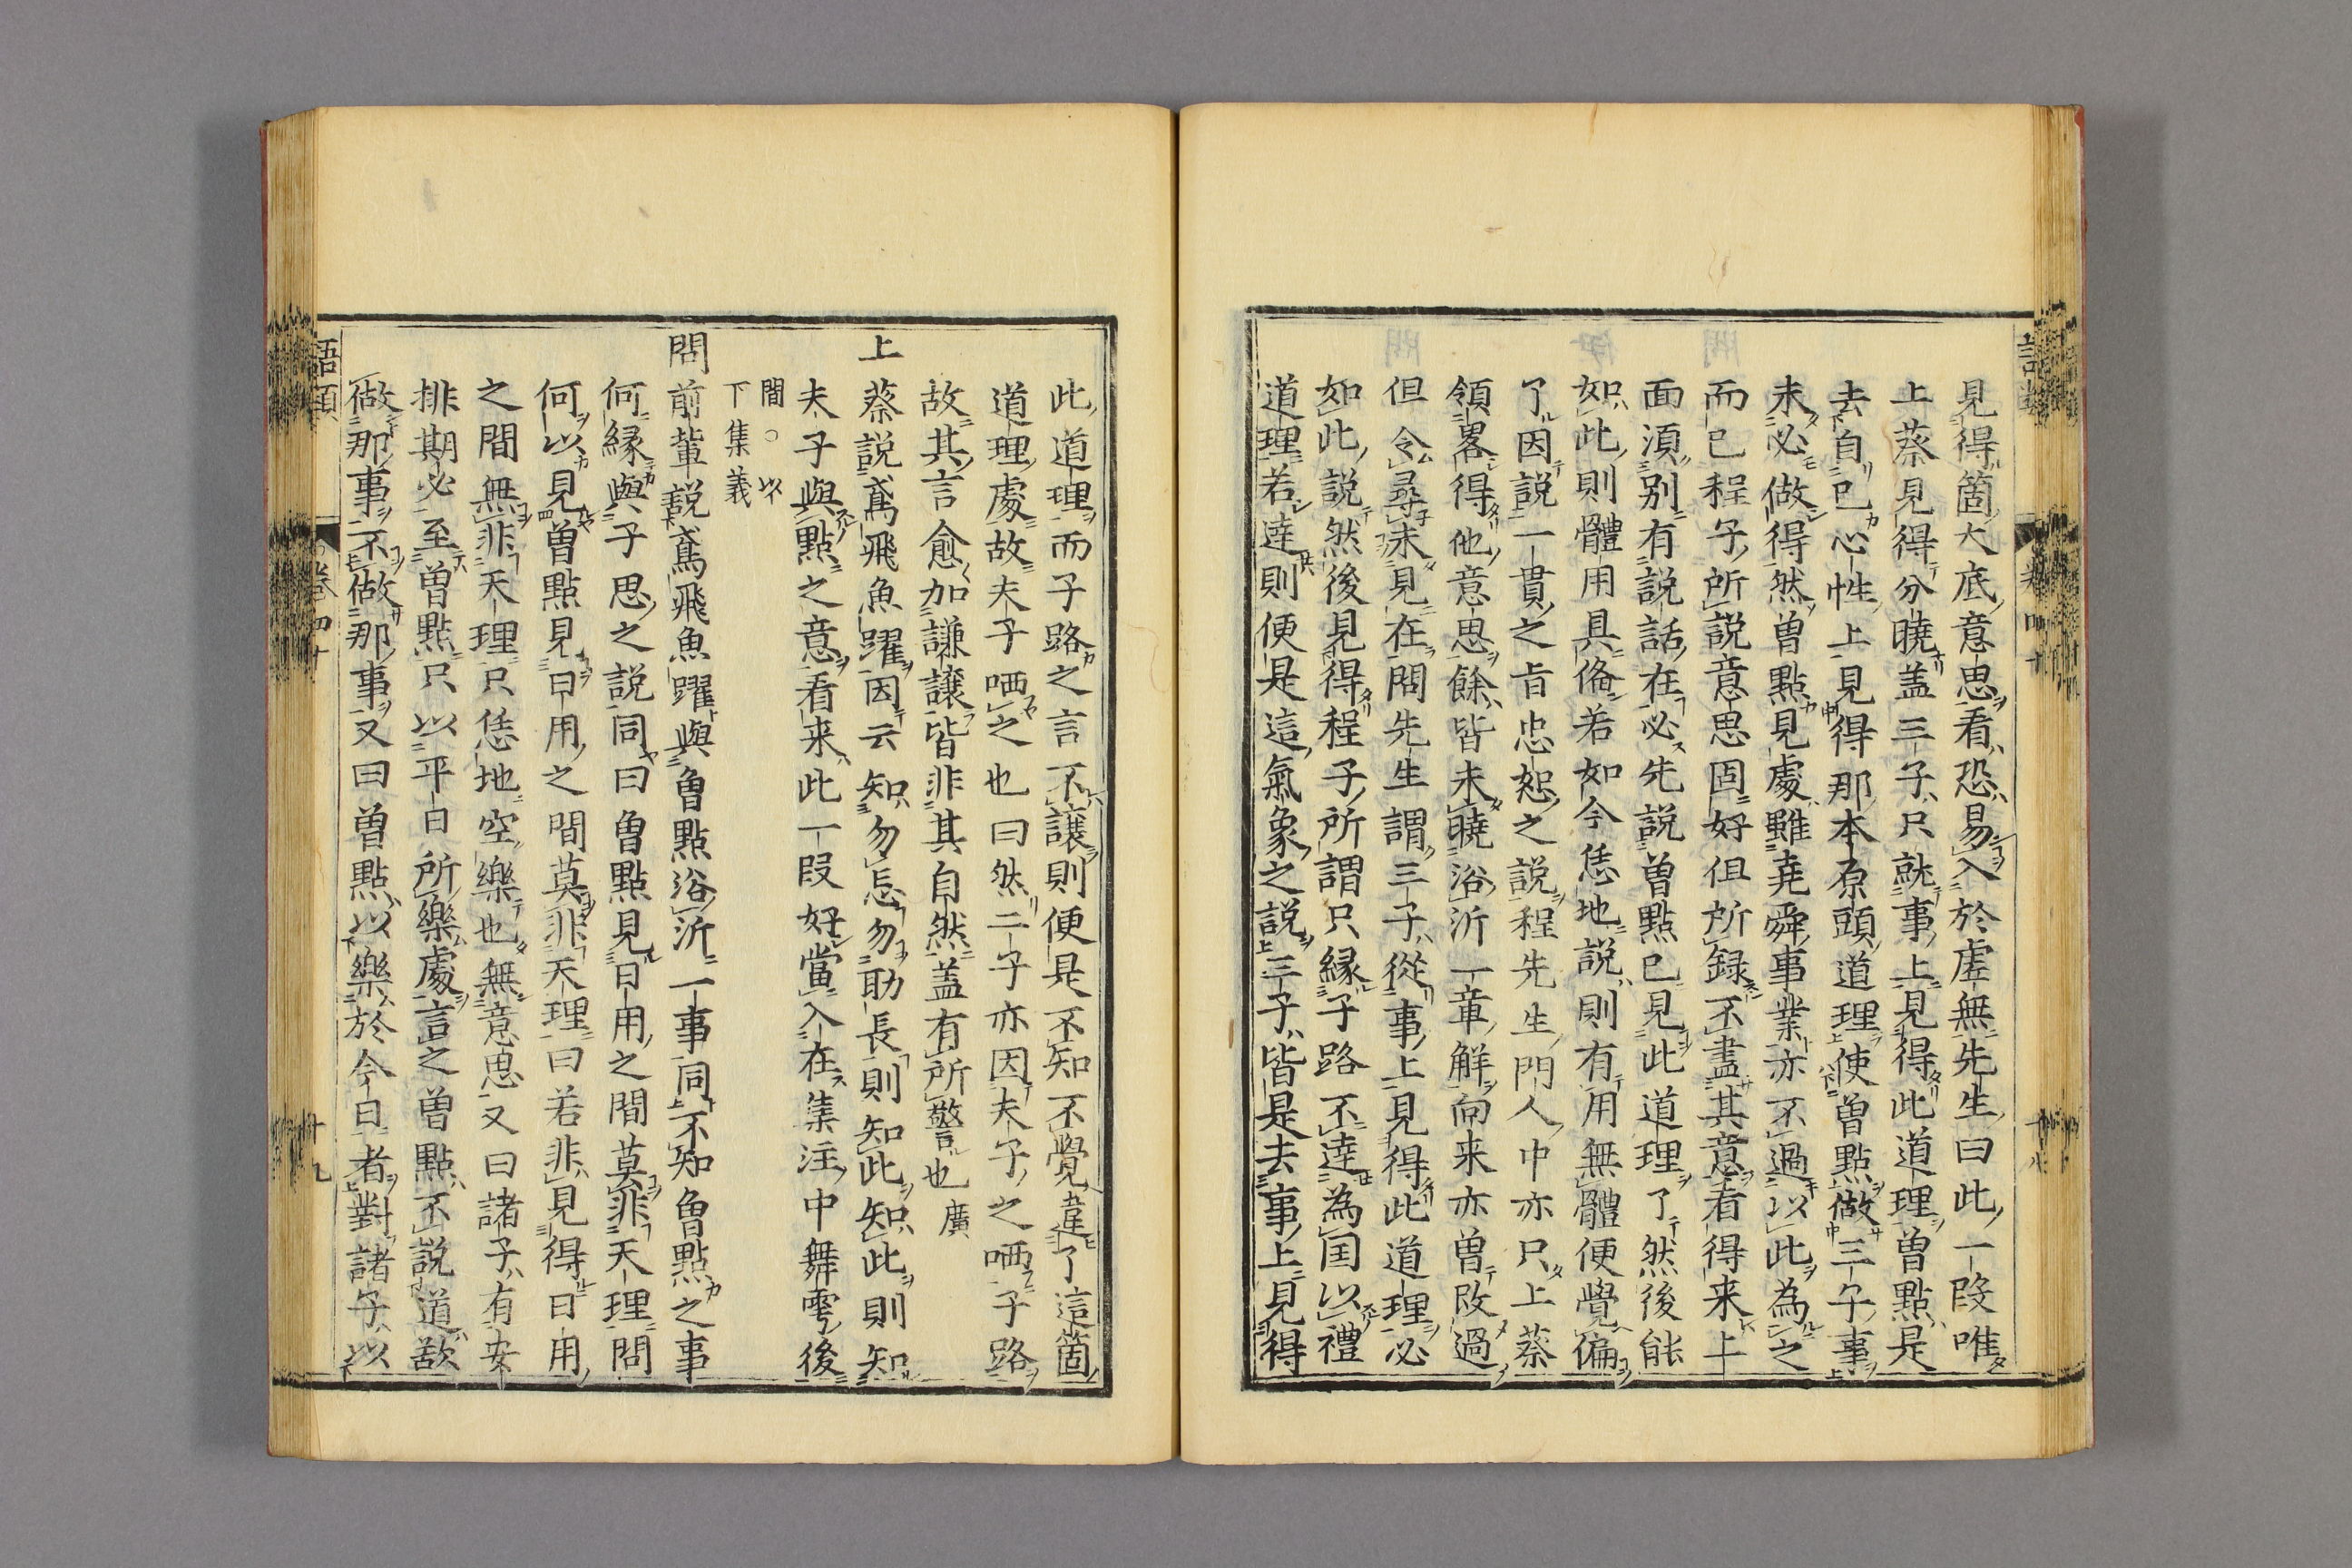 見得箇大底意思看恐易入於虛無先生曰此一段唯
上蔡見得分曉盖三子只就事上見得此道理曽點是
去自己心性上見得那本原頭道理使曽點做三子事
未必做得然曽點見處雖堯舜事業亦不過以此為之
而已程子所說意思固好但所録不盡其意看得来上
面湏别有說話在必先說曽點已見此道理了然後能
如此則體用具俻若如今恁地說則有用無體便覺偏
了因說一貫之旨忠恕之說程先生門人中亦只上蔡
領畧得他意思餘皆未曉浴沂一章觧向来亦曽改過
但令尋未見在問先生謂三子從事上見得此道理必
如此說然後見得程子所謂只縁子路不達為囯以禮
道理若達則便是這氣象之說三子皆是去事上見得
此道理而子路之言不讓則便是不知不覺違了這箇
道理處故夫子哂之也曰然二子亦因夫子之哂子路
故其言愈加謙讓皆非其自然盖有所警也 廣
上蔡說鳶飛魚躍因云知勿忘勿助長則知此知此則知
夫子與點之意看来此一段好當入在集注中舞雩後
間○以下集義
問前軰說鳶飛魚躍與曽點浴沂一事同不知曽點之事
何縁與子思之說同曰曽點見日用之間莫非天理問
何以見曽點見日用之間莫非天理曰若非見得日用
之間無非天理只恁地空樂也無意思又曰諸子有安
排期必至曽點只以平日所樂處言之曽點不說道欲
做那事不做那事又曰曽點以樂於今日者對諸子以
語類 卷四十 十九
語類 卷四十 十八